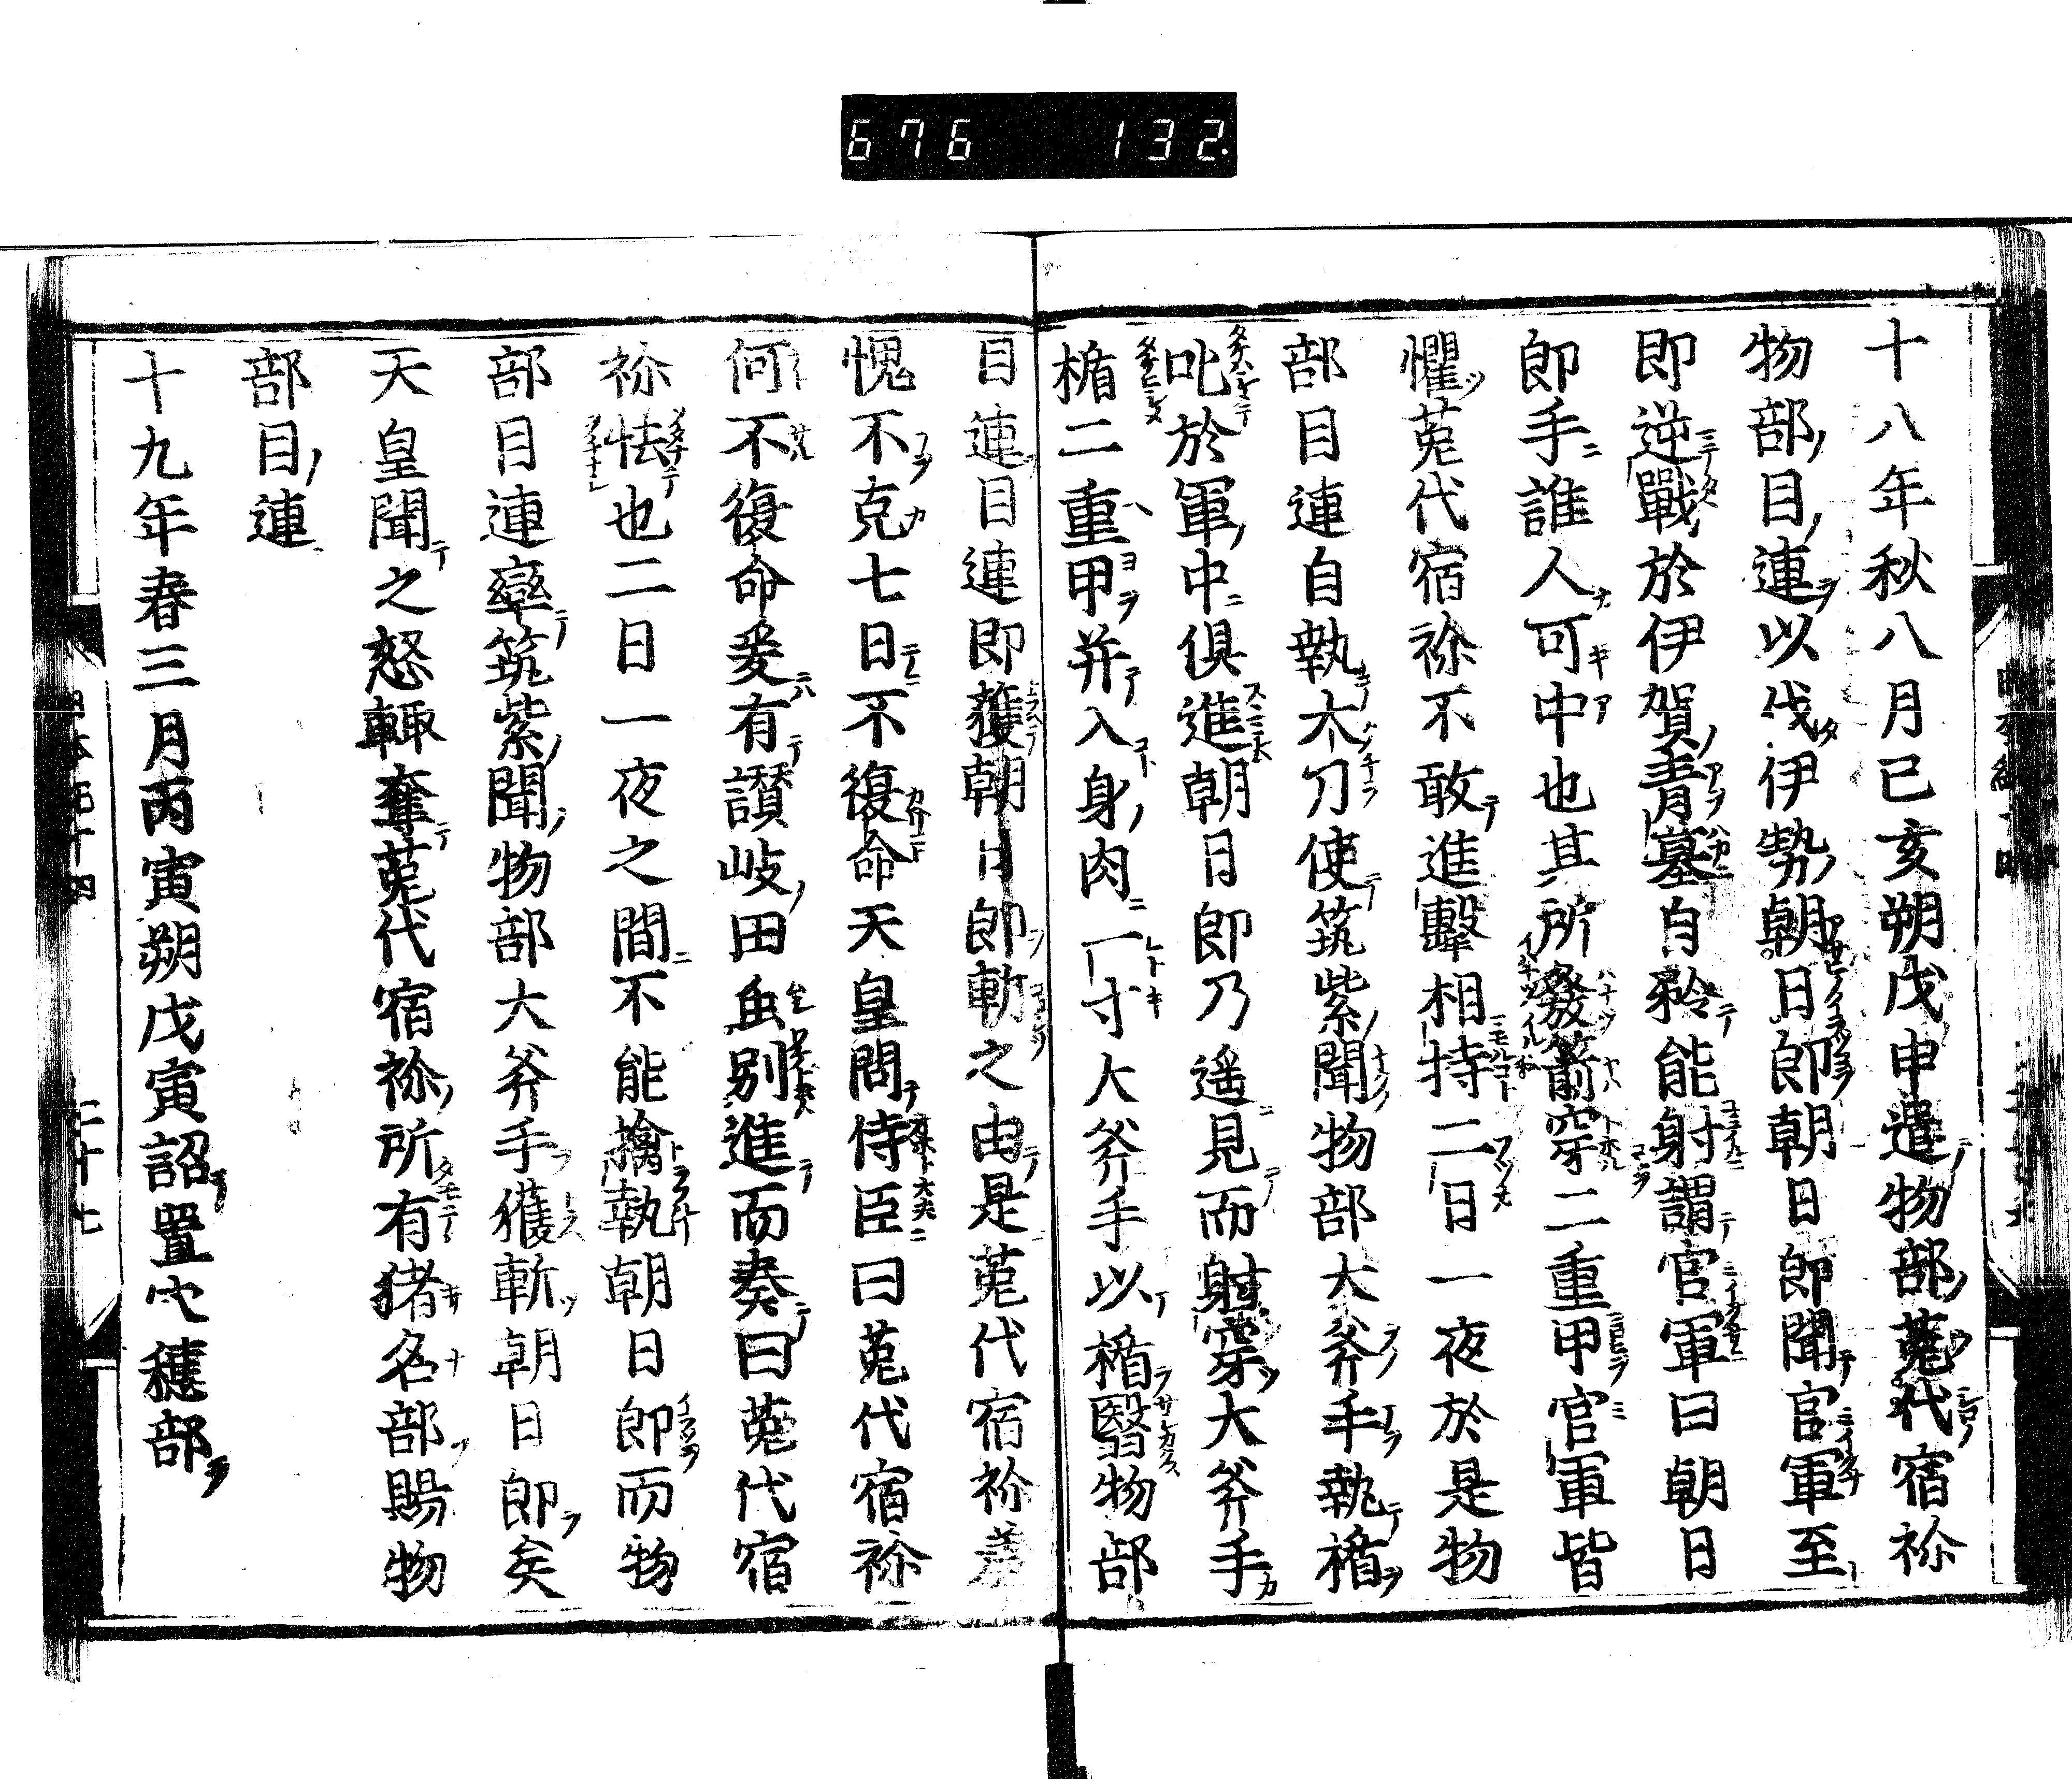 676 132.
十八年秋八月己亥朔戊申遣物部菟代宿祢
物部目連以伐伊勢朝日郎朝日郎聞官軍至
即逆戰於伊賀青墓自矜能射謂官軍曰朝日
郎手誰人可中也其所發箭穿二重甲官軍皆
懼菟代宿祢不敢進擊相持二日一夜於是物
部目連自執大刀使筑紫聞物部大斧手執楯
叱於軍中俱進朝日郎乃遥見而射穿大斧手
楯二重甲并入身肉一寸大斧手以楯翳物部
目連目連即獲朝日郎斬之由是菟代宿祢羞
愧不克七日不復命天皇問侍臣曰菟代宿祢
何不復命爰有讃岐田虫別進而奏曰菟代宿
祢怯也二日一夜之間不能擒執朝日郎而物
部目連率筑紫聞物部大斧手獲斬朝日郎矣
天皇聞之怒輙奪菟代宿祢所有猪名部賜物
部目連
十九年春三月丙寅朔戊寅詔置穴穗部